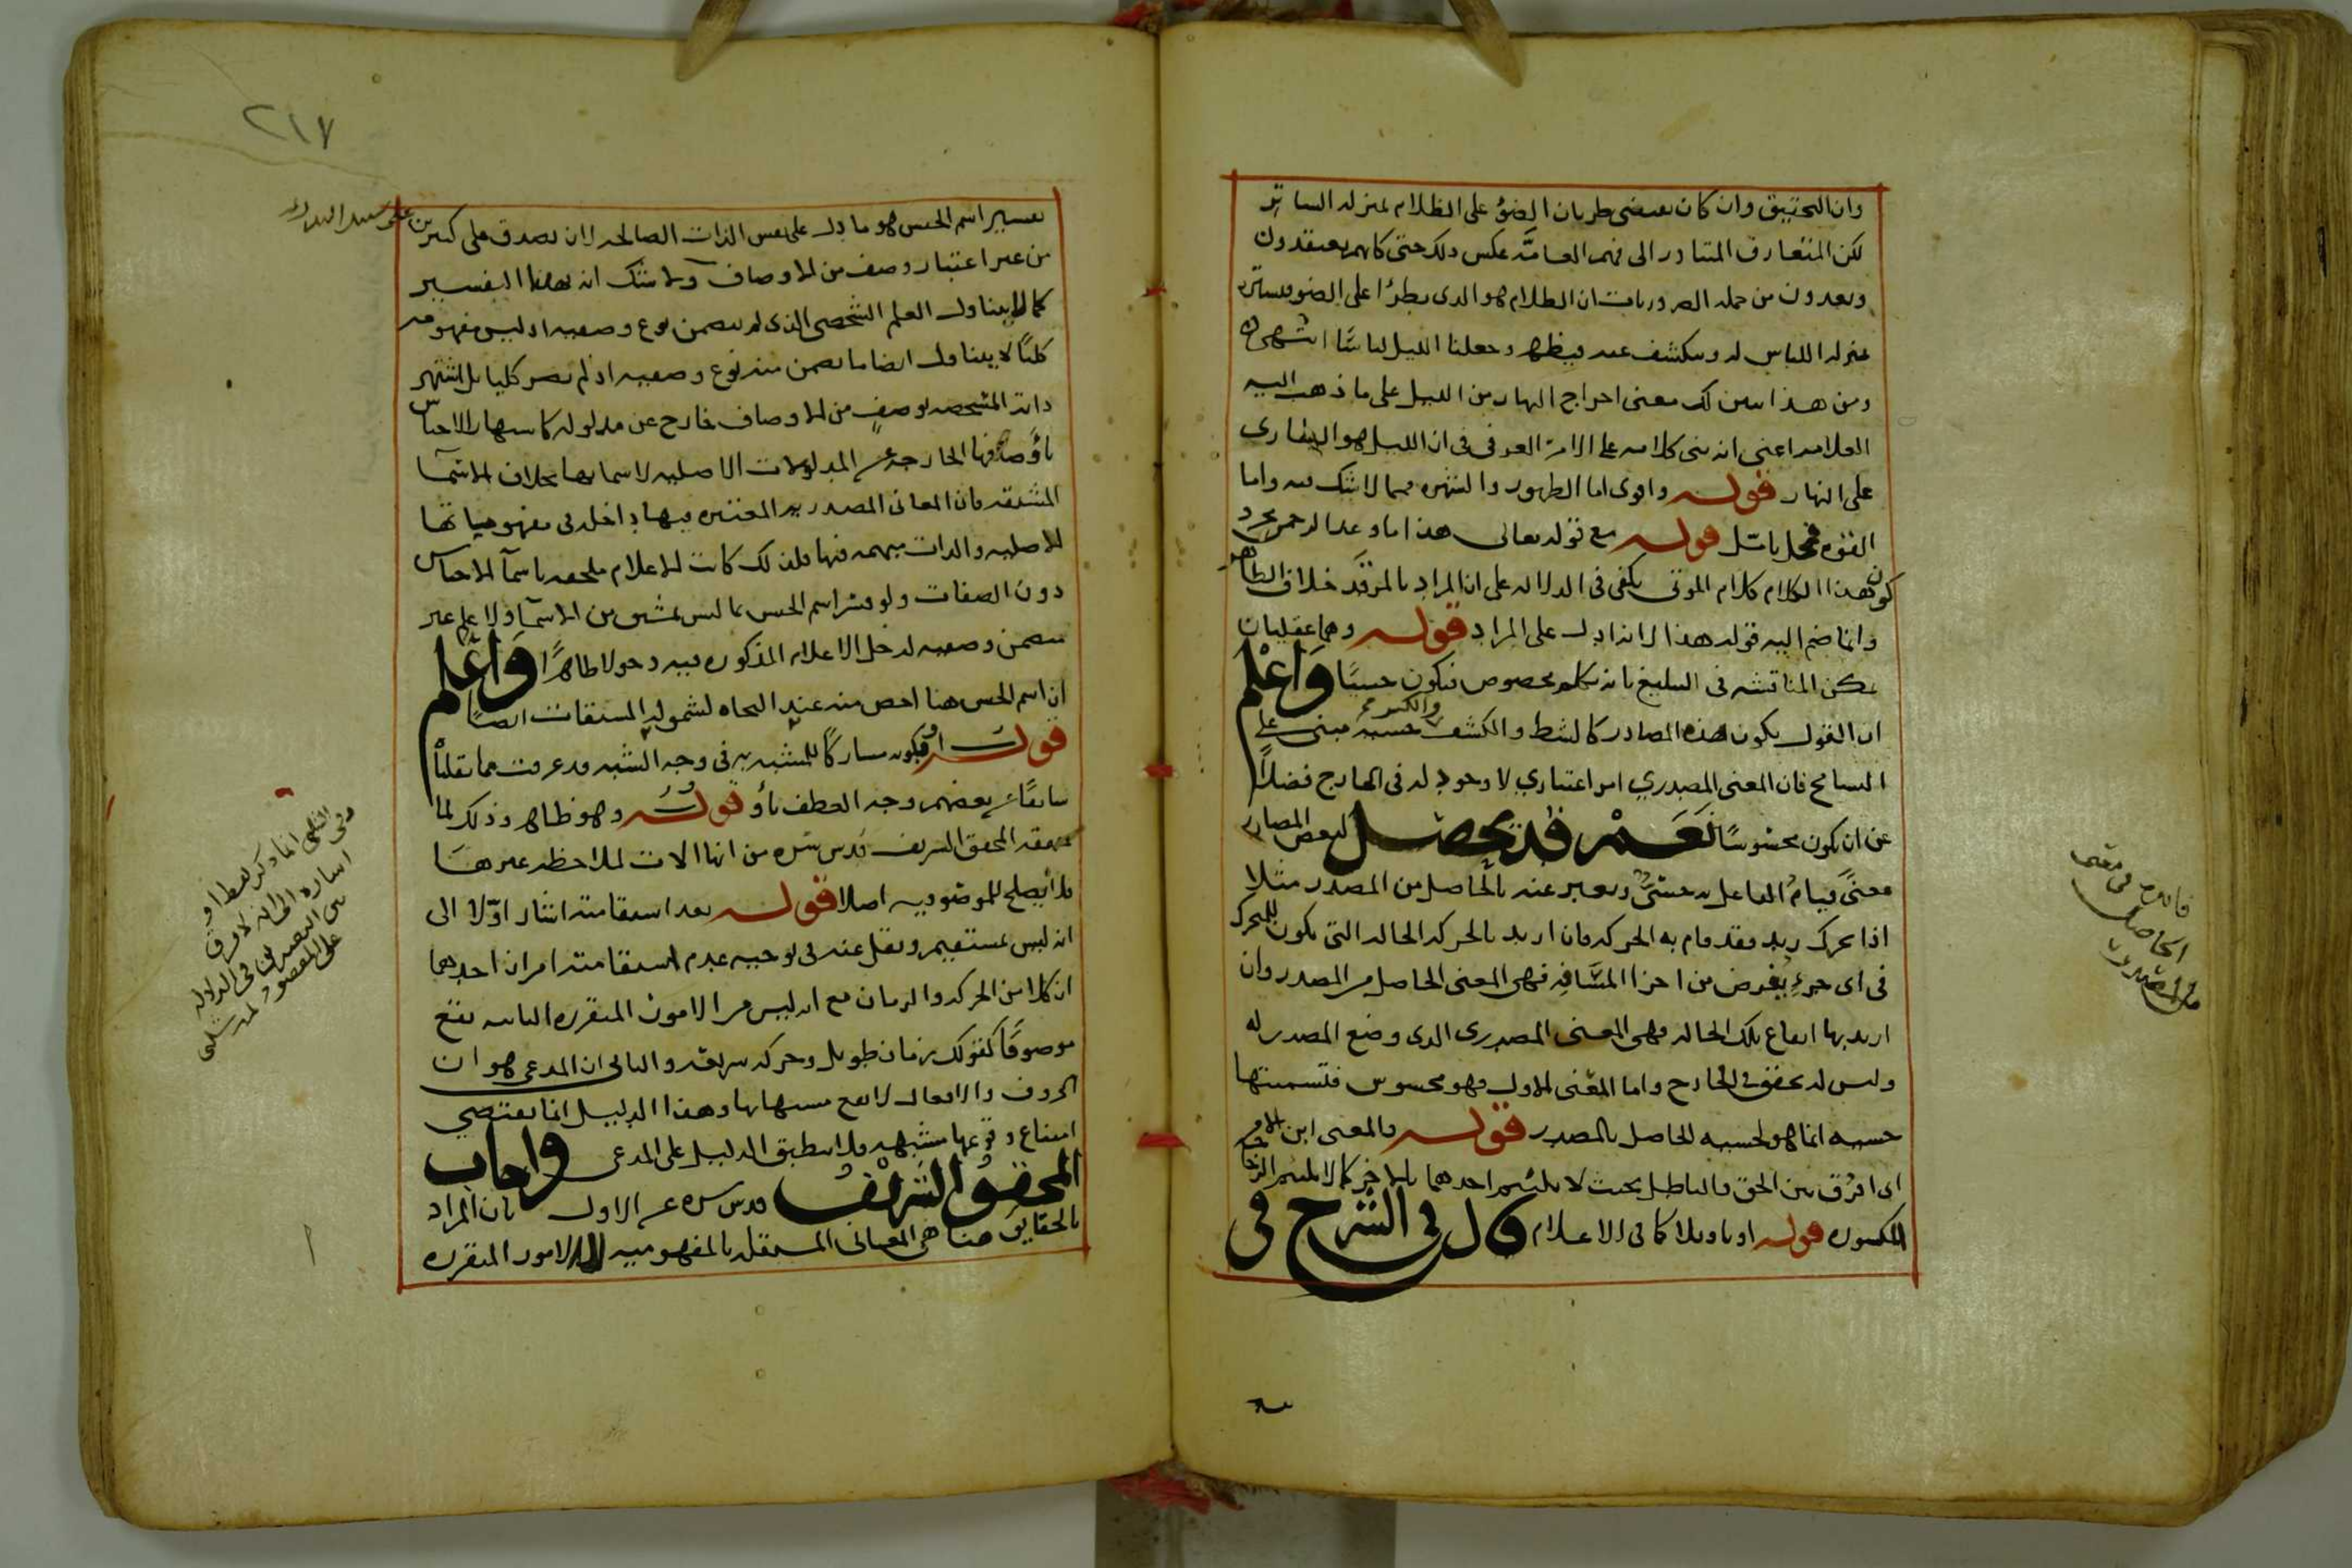 وان التحقيق وان كان يقتضى طريان الضوء على الظلام بمنزله الساتر
لكن المتعارف المتبادر الى فهم العامة عكس ذلك حتى كانهم يعتقدون
ويعدون من جمله الضروريات ان الظلام هو الذى يطرأ على الضو ويستره
بمنزله اللباس له وينكشف عنه فيظهر وجعلنا الليل لباسًا انتهى
ومن هذا تبين لك معنى اخراج النهار من الليل على ما ذهب اليه
العلامه اعنى انه بنى كلامه على الامر العرفى فى ان الليل هو الطارى
على النهار قوله واقوى اما الظهور والشهره فمما لا شك فيه واما
القوه فمحل تامل قوله مع قوله تعالى هذا ما وعد الرحمن مجرد
كون هذا الكلام كلام الموتى يكفى فى الدلاله على ان المراد بالمرقد خلاف الظاهر
وانما ضم اليه قوله هذا لانه ادل على المراد قوله وهما عقليان
يمكن المناقشه فى التبليغ بانه تكلم مخصوص فيكون حسيًا واعلم
ان القول بكون هذه المصادر كالكشط والكشف والكسر حسيه مبنى على
التسامح فان المعنى المصدري امر اعتباري لا وجود له فى الخارج فضلاً
عن ان يكون محسوسًا نعم قد يحصل لبعض المصادر
معنىً قيام الفاعل به حسىٌّ ويعبر عنه بالحاصل من المصدر مثلا
اذا تحرك زيد فقد قام به الحركه فان اريد بالحركه الحاله التى يكون للمتحرك
فى اى جزءٍ يُفرض من اجزا المسَافه فهى المعنى الحاصل من المصدر وان
اريد بها ايقاع تلك الحاله فهى المعنى المصدرى الذى وضع المصدر له
وليس له تحقق فى الخارج واما المعنى الاول فهو محسوس فتسميتها
حسيه انما هو لحسيه الحاصل بالمصدر قوله فالمعنى ابن الامر
اى افرُق بين الحق والباطل بحيث لا يلتئم احدهما بالاخر كما لا يلتئم الزجاج
المكسوره قوله او تاويلا كما فى الاعلام قال فى الشرح فى
فائده فى معنى
الحاصل
من المصدر
٢١٧
تفسير اسم الجنس هو ما دل على نفس الذات الصالحه لان تصدق على كثيرين
من غير اعتبار وصف من الاوصاف ولا شك ان هذا التفسير
كما لا يتناول العلم الشخصى الذى لم يتضمن نوع وصفيه اذ ليس مفهومه
كليًا لا يتناول ايضا ما تضمن منه نوع وصفيه اذ لم يصر كليا بل اشتهر
ذاته المشخصه بوصفٍ من الاوصاف خارج عن مدلوله كاشتهار الاجناس
باوصافها الخارجه عن المدلولات الاصليه لاسمايها بخلاف الاسمآ
المشتقه فان المعانى المصدريه المعتبره فيها داخله فى مفهومياتها
الاصليه والذات مبهمه فيها فلذلك كانت الاعلام ملحقه باسمآ الاجناس
دون الصفات ولو فسر اسم الجنس بما ليس بمشتق من الاسمآ ولا علم غير
متضمن وصفيه لدخل الاعلام المذكوره فيه دخولا ظاهرًا واعلم
ان اسم الجنس هنا اخص منه عند النحاه لشموله المشتقات ايضًا
قوله او يكونه مشاركًا للمشبه به فى وجه الشبه قد عرفت مما نقلنا
سابقًا عن بعضهم وجه العطف بأو قوله وهو ظاهر وذلك لما
حققه المحقق الشريف قدس سره من انها الات لملاحظه غيرها
فلا يصلح للموصوفيه اصلا قوله بعد استقامته اشار اوّلا الى
انه ليس بمستقيم ونقل عنه فى توجيه عدم استقامته امران احدهما
ان كلا من الحركه والزمان مع انه ليس من الامور المتقرره الثابته يقع
موصوفًا كقولك زمان طويل وحركه سريعه والثانى ان المدعى هو ان
الحروف والافعال لا يقع مشبهابها وهذا الدليل انما يقتضي
امتناع وقوعها مشبهه فلا ينطبق الدليل على المدعى واجاب
المحقق الشريف قدس سره عن الاول بان المراد
بالحقايق هنا هى المعانى المستقله بالمفهوميه لا الامور المتقرره